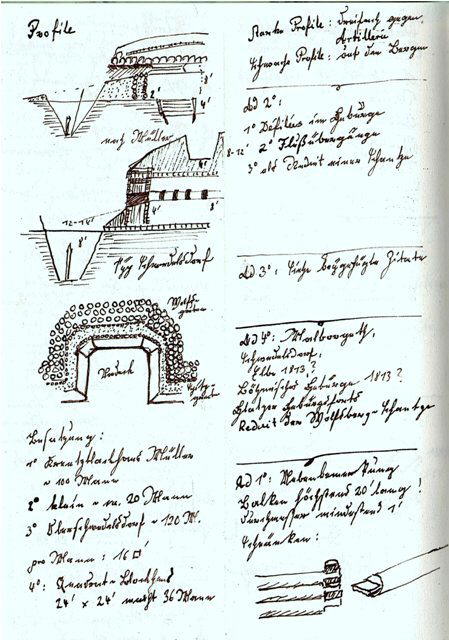 Profile
8'
2'
4'
nach Müller
4'
8-12'
12-14'
8'
Typ Schwedelsdorf
Wolfs-
gruben
Besatzung:
1° Kreuzblockhaus Müller
≈ 100 Mann
2° klein ≈ ca. 20 Mann
3° Oberschwedelsdorf ≈ 120 M.
pro Mann: 16 □'
4°: Quadrat-Blockhaus
24' x 24' macht 36 Mann
Starke Profile: dreifach gegen
Artillerie
Schwache Profile: auf den Bergen
Ad 2°:
1° Défilées im Gebirge
2° Flußübergänge
3° als Reduit einer Schanze
Ad 3°: Siehe beigefügte Zitate
Ad 4°:
Schwedelsdorf,
Elbe 1813?
Böhmisches Gebirge 1813?
Glatzer Gebirgsforts
Reduit der Wolfsberg-Schanze
Ad 1°: Nebenbemerkung
Balken höchstens 20' lang!
Durchmesser mindestens 1'
Schränken: